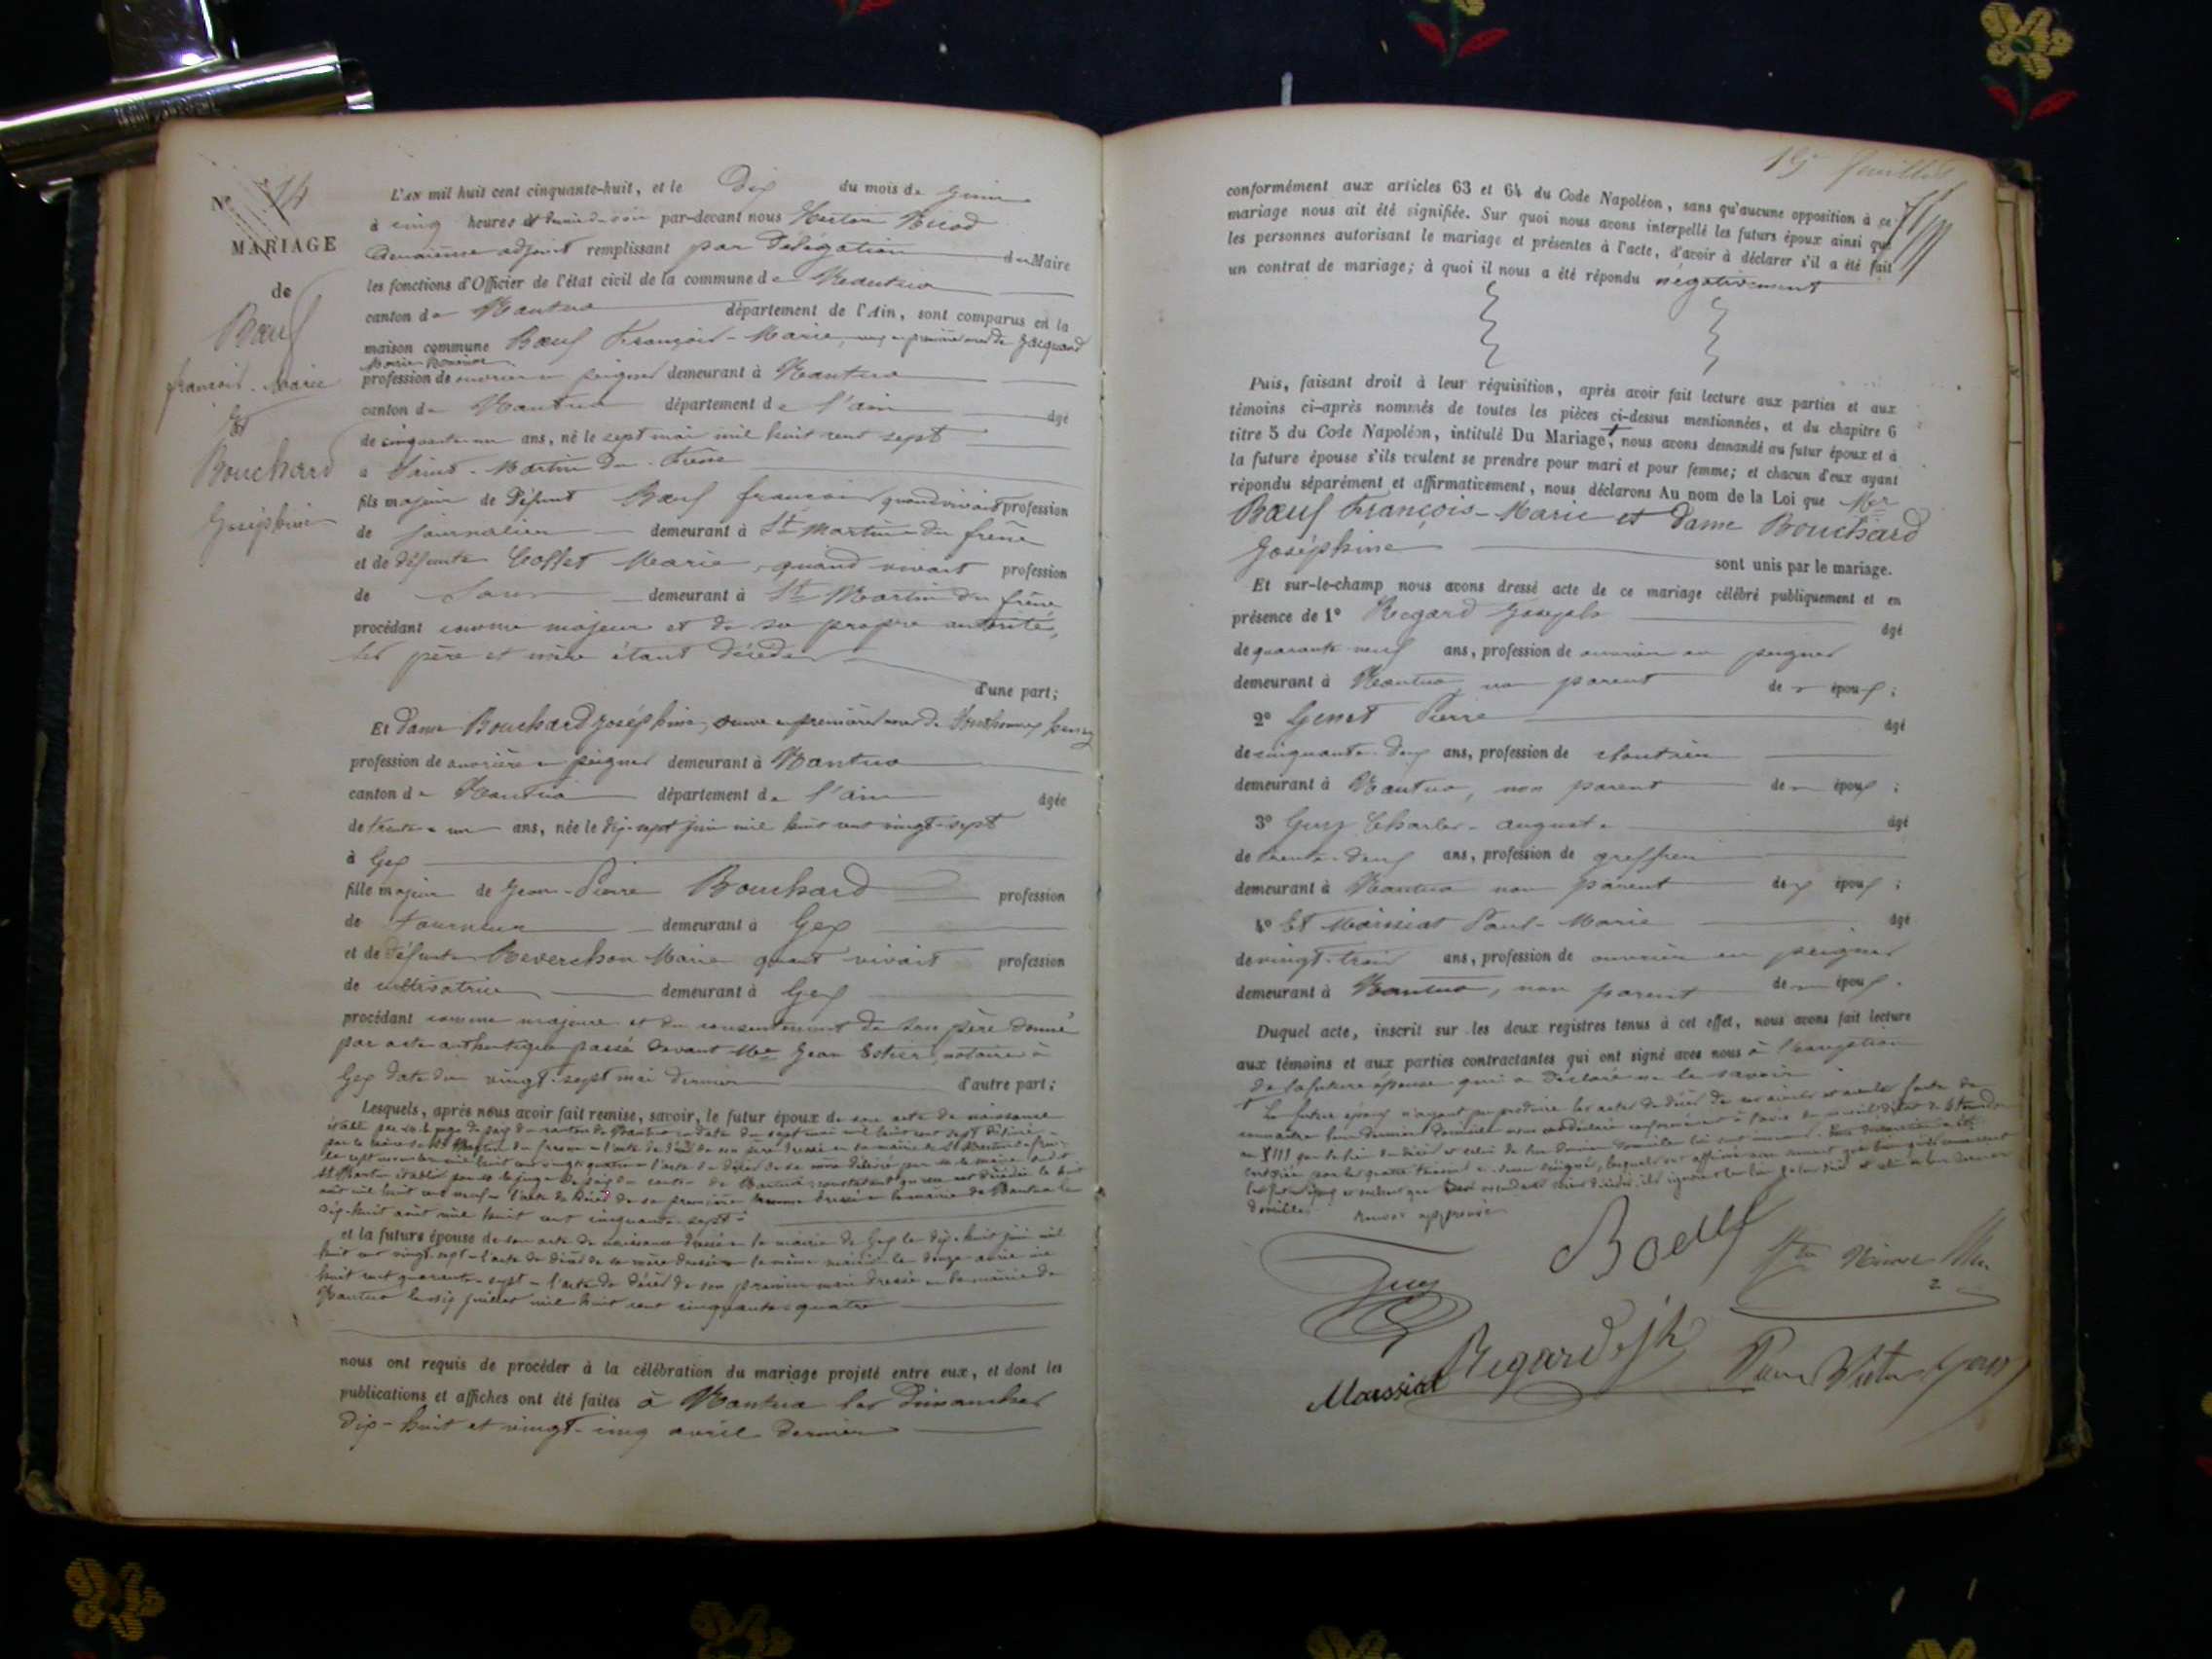 N° 14
MARIAGE
de
Bœuf
francois-Marie
Et
Bouchard
Joséphine
L'AN mil huit cent cinquante-huit, et le Dix du mois de Juin
à cinq heures et demie du soir par-devant nous
Deuxième adjoint remplissant par Délégation du Maire
les fonctions d'Officier de l'état civil de la commune de Nantua
canton de Nantua département de l'Ain, sont comparus en la
maison commune Bœuf François-Marie, de Jacquand
Marie
profession de ouvrier en peignes demeurant à Nantua
canton de Nantua département de l'ain âgé
de cinquante un ans, né le sept mai mil huit cent sept
a Saint-Martin du Frêne
fils majeur de Défunt Bœuf francois quand vivait profession
de journalier demeurant à St Martin du frêne
et de défunte Marie, quand vivait profession
de demeurant à St Martin du frêne
procédant comme majeur et de sa propre autorité,
ses père et mère étant décédés
d'une part;
Et dame Bouchard Joséphine, veuve en premières noces de
profession de ouvrière en peignes demeurant à Nantua
canton de Nantua département de l'ain âgée
de trente-un ans, née le dix-sept juin mil huit cent vingt-sept
à Gex
fille majeure de Jean-Pierre Bouchard profession
de Tourneur demeurant à Gex
et de défunte Reverchon Marie quant vivait profession
de cultivatrice demeurant à Gex
procédant comme majeure et du consentement de son père donné
par acte authentique passé devant Me Jean notaire à
Gex date du vingt-sept mai dernier d'autre part;
Lesquels, après nous avoir fait remise, savoir, le futur époux de son acte de naissance
le juge de paix du canton de Nantua en date du sept mai mil huit cent sept
St Martin du fresne l'acte de décès de son père dressé en la mairie de St Martin du fresne
le sept mil huit cent vingt quatre l'acte de décès de sa mère délivré par le maire dudit
St Martin établi par le juge de paix du canton de Nantua constatant qu'elle est décédée le huit
août mil huit cent neuf l'acte de décès de sa première femme dressé en la mairie de Nantua le
dix-huit août mil huit cent cinquante-sept
et la future épouse de son acte de naissance dressé en la mairie de Gex le dix-huit juin mil
huit cent vingt-sept l'acte de décès de sa mère dressé en la même mairie le douze avril mil
huit cent quarante-sept l'acte de décès de son premier mari dressé en la mairie de
Nantua le dix juillet mil huit cent cinquante-quatre
nous ont requis de procéder à la célébration du mariage projeté entre eux, et dont les
publications et affiches ont été faites à Nantua les Dimanches
dix-huit et vingt-cinq avril dernier
19e feuillet
conformément aux articles 63 et 64 du Code Napoléon, sans qu'aucune opposition à ce
mariage nous ait été signifiée. Sur quoi nous avons interpellé les futurs époux ainsi que
les personnes autorisant le mariage et présentes à l'acte, d'avoir à déclarer s'il a été fait
un contrat de mariage; à quoi il nous a été répondu négativement
Puis, faisant droit à leur réquisition, après avoir fait lecture aux parties et aux
témoins ci-après nommés de toutes les pièces ci-dessus mentionnées, et du chapitre 6
titre 5 du Code Napoléon, intitulé Du Mariage, nous avons demandé au futur époux et à
la future épouse s'ils veulent se prendre pour mari et pour femme; et chacun d'eux ayant
répondu séparément et affirmativement, nous déclarons Au nom de la Loi que
Bœuf François-Marie et dame Bouchard
Joséphine sont unis par le mariage.
Et sur-le-champ nous avons dressé acte de ce mariage célébré publiquement et en
présence de 1° Regard Joseph âgé
de quarante neuf ans, profession de ouvrier en peignes
demeurant à Nantua, non parent des époux;
2° Genet Pierre âgé
de cinquante-deux ans, profession de cloutier
demeurant à Nantua, non parent des époux;
3° Guy Charles-auguste âgé
de trente-deux ans, profession de greffier
demeurant à Nantua non parent des époux;
4° Et Maissiat Paul-Marie âgé
de vingt-trois ans, profession de ouvrier en peignes
demeurant à Nantua, non parent des époux.
Duquel acte, inscrit sur les deux registres tenus à cet effet, nous avons fait lecture
aux témoins et aux parties contractantes qui ont signé avec nous à l'exception
de la future épouse qui a déclaré ne le savoir
Le futur époux n'ayant pu produire les actes de décès de ses aïeuls et aïeules faute de
connaître leur dernier domicile
domicile.
Boeuf
Guy
Regard Jh
Maissiat